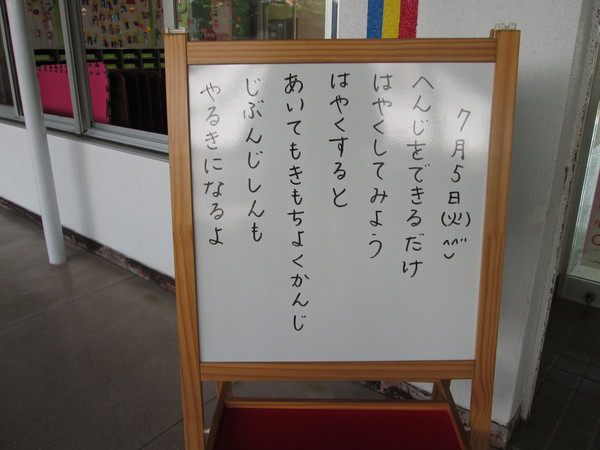 7月5日(火)^^
へんじをできるだけ
はやくしてみよう
はやくすると
あいてもきもちよくかんじ
じぶんじしんも
やるきになるよ